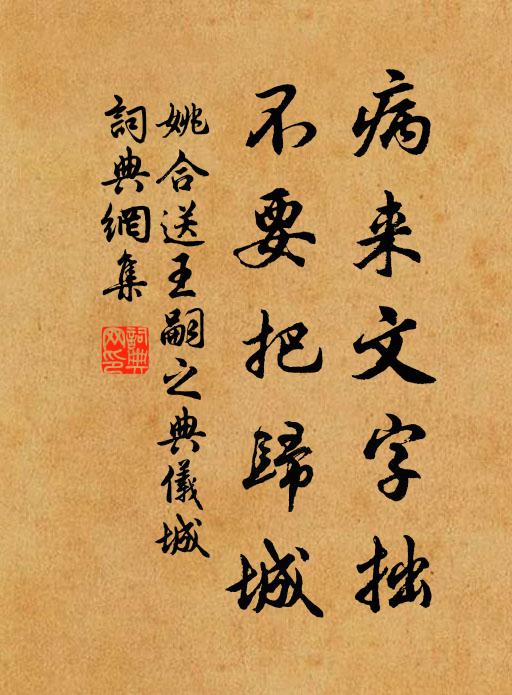 病来文字拙
不要把歸城
姚合送王嗣之典儀城
詞典網集
詞典
网印